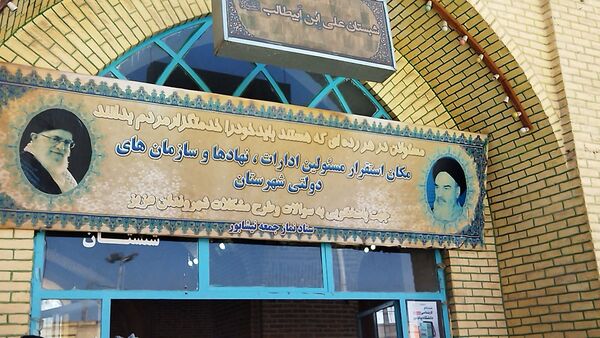 شبستان علی ابن ابیطالب
مسئولان در هر رده ای که هستند باید خود را خدمتگزار مردم بدانند
مکان استقرار مسئولین ادارات ، نهادها و سازمان های
دولتی شهرستان
جهت پاسخگویی به سوالات و طرح مشکلات شهروندان عزیز
ستاد نماز جمعه نیشابور
شبستان